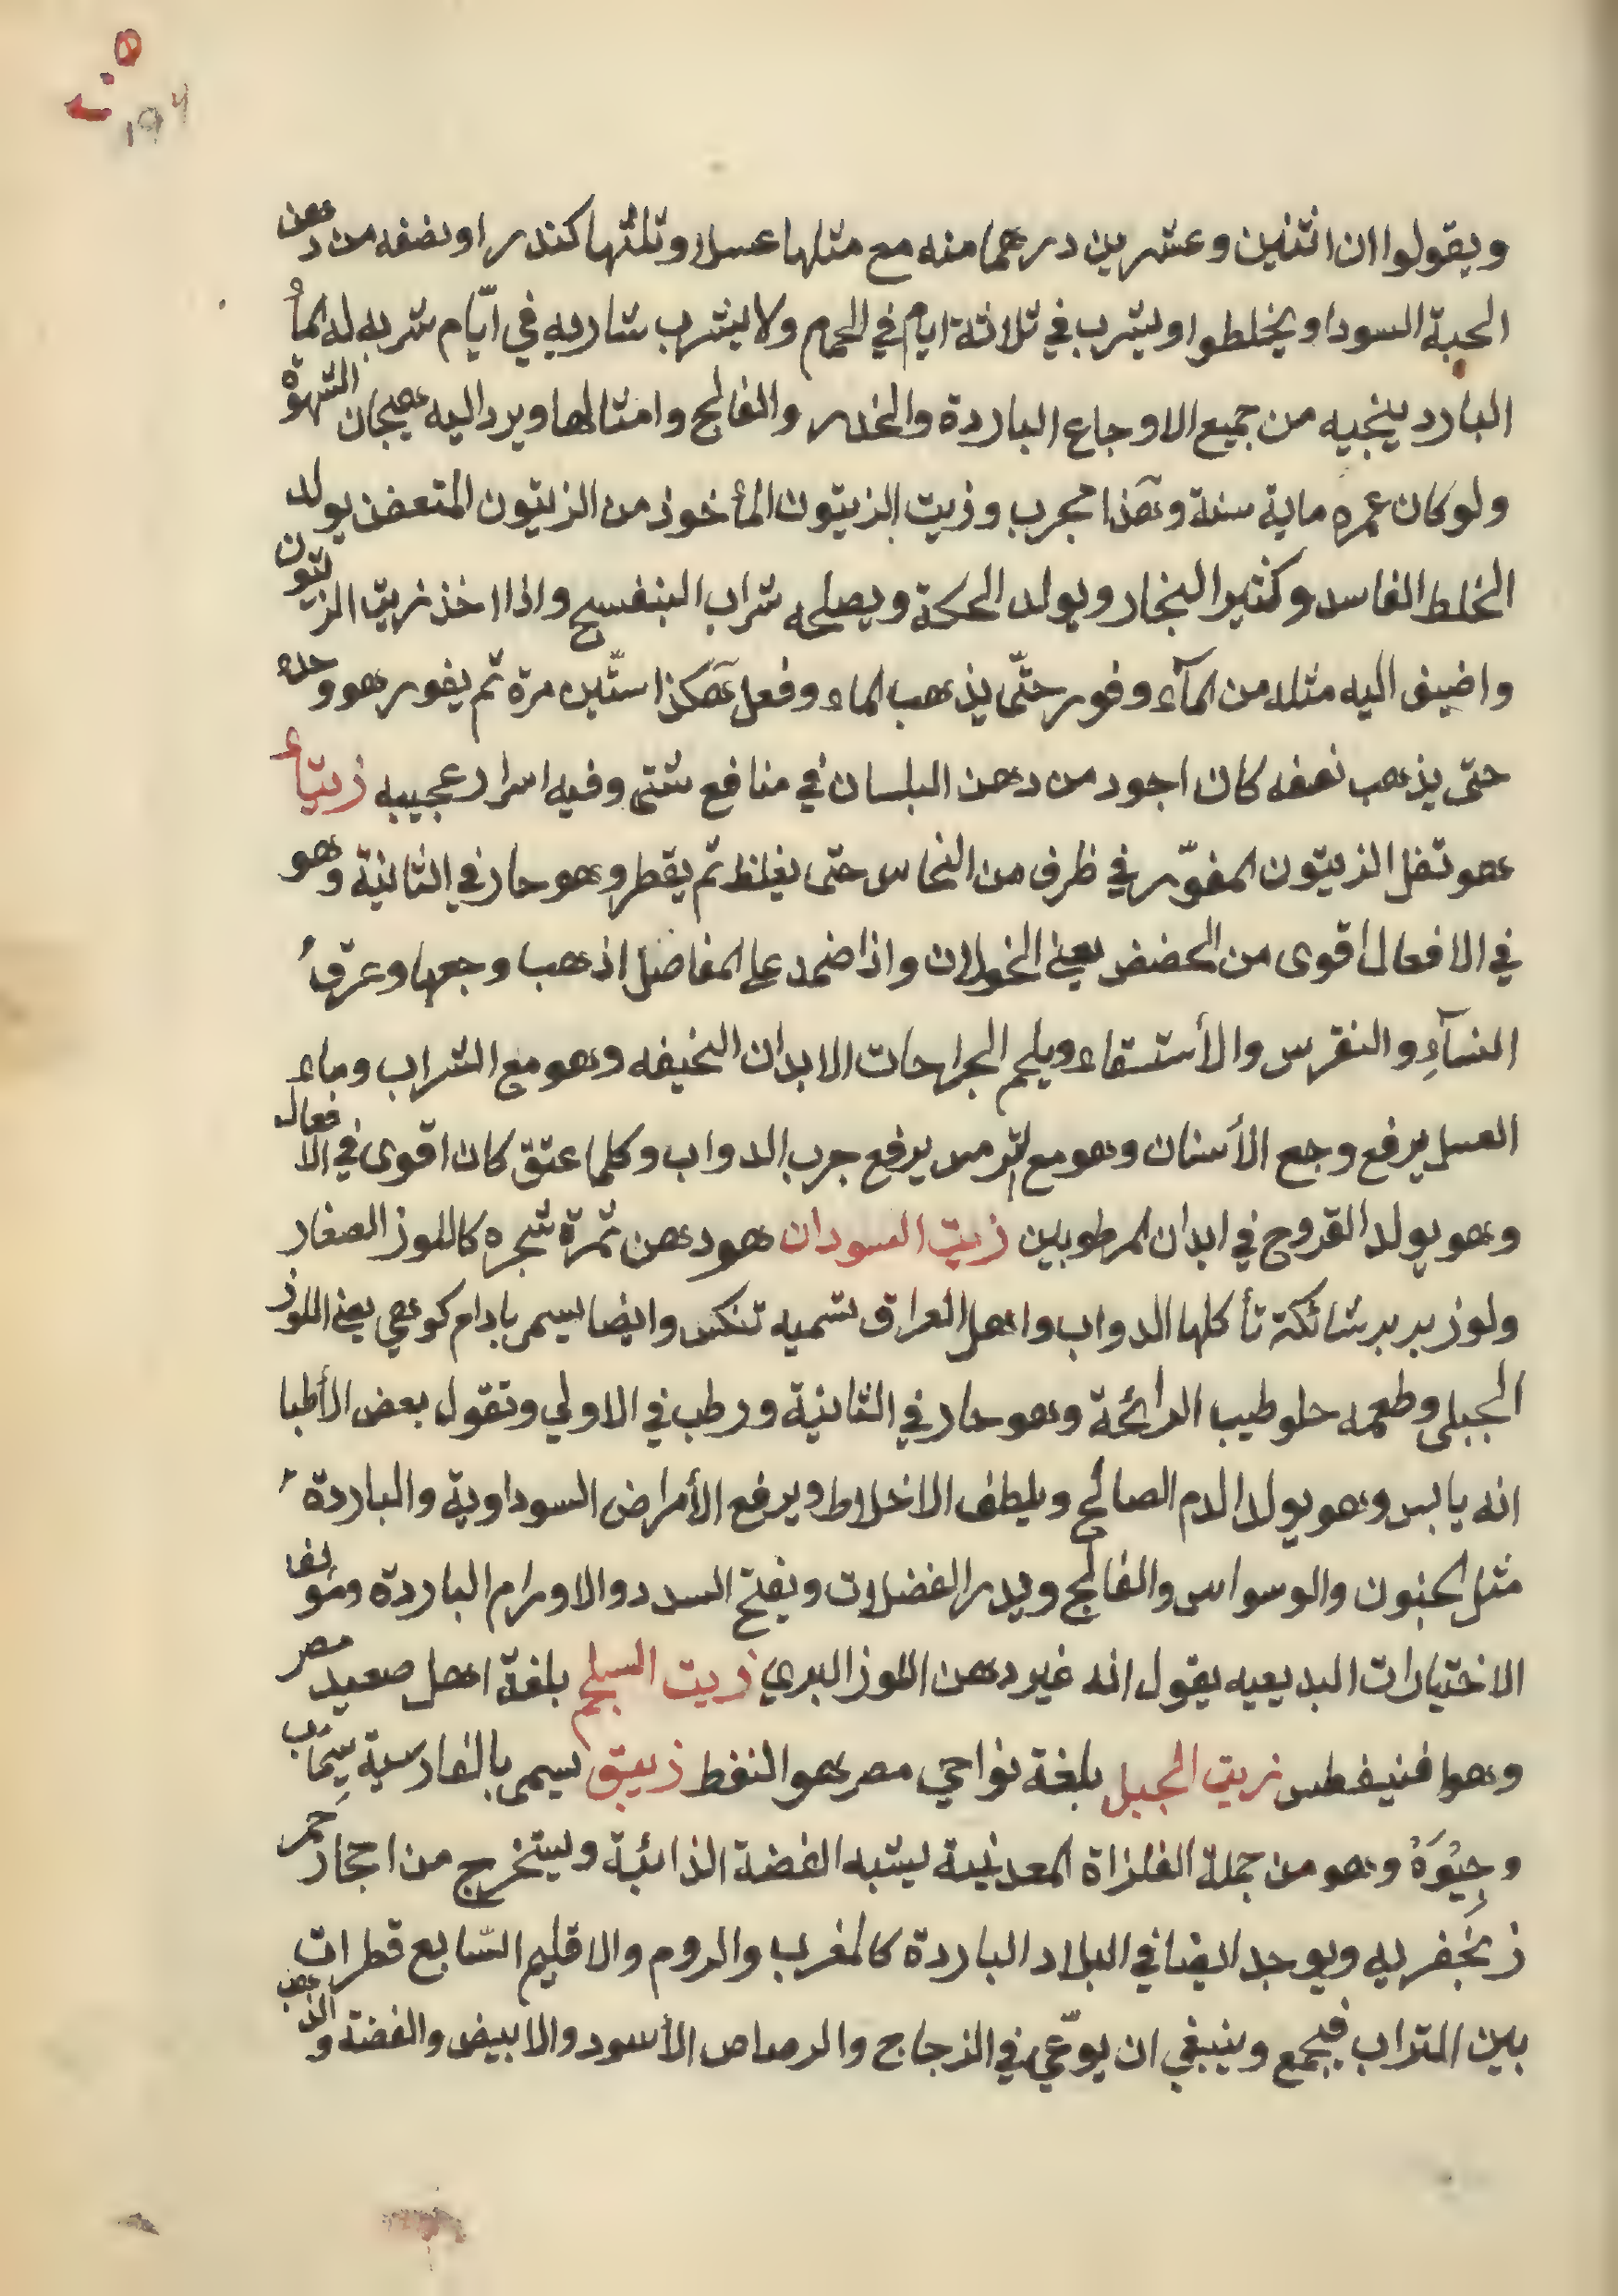 ١٩٤
ويقولوا ان اثنين وعشرين درهما منه مع مثلها عسلا وثلثها كندرا ونصفه من دهن
الحبة السودا ويخلطوا ويشرب في ثلاثة ايام في الحمام ولا يشرب شاربه في ايّام شربه له الماُ
البارد ينجيه من جميع الاوجاع الباردة والخدر والفالج وامثالها ويرد اليه هيجان الشهوة
ولو كان عمره ماية سنة وهذا مجرب وزيت الزيتون المأخوذ من الزيتون المتعفن يولد
الخلط الفاسد وكثير البخار ويولد الحكة ويصلحه شراب البنفسج واذا اخذ زيت الزيتون
واضيف اليه مثله من المآء وفور حتّى يذهب الماء وفعل هكذا ستّين مرة ثم يفور هو وحده
حتى يذهب نصفه كان اجود من دهن البلسان في منافع شتى وفيه اسرار عجيبه زيتاء
هو ثفل الزيتون المفوّر في ظرف من النحاس حتى يغلظ ثم يقطر وهو حار في الثانية وهو
في الافعال اقوى من الحضض يعني الخولان واذا ضمد على المفاصل اذهب وجعها وعرقُ
النسآءِ والنقرس والأستسقاء ويلحم الجراحات الابدان النحيفه وهو مع الشراب وماء
العسل يرفع وجع الأسنان وهو مع الترمس يرفع جرب الدواب وكلما عتق كان اقوى في الافعال
وهو يولد القروح في ابدان المرطوبين زيت السودان هو دهن ثمرة شجره كاللوز الصغار
ولوز بربر شائكة تأكلها الدواب واهل العراق تسميه تنكس وايضا يسمر بادام كوهي يعني اللوز
الجبلى وطعمه حلو طيب الرائحة وهو حار في الثانية ورطب في الاولي وتقول بعض الأطبا
انه يابس وهو يولد الدم الصالح ويلطف الاخلاط ويرفع الأمراض السوداوية والباردة
مثل الجنون والوسواس والفالج ويدر الفضلات ويفتح السدد والاورام الباردة ومؤلف
الاختيارات البديعيه يقول انه غير دهن اللوز البري زيت السلجم بلغة اهل صعيد مصر
وهو افنيفطس زيت الجبل بلغة نواحي مصر هو النفط زيبق يسمى بالفارسية سِيمَاب
وجِيْوَهْ وهو من جملة الفلزاة المعدنية يشبه الفضة الذائبة ويستخرج من احجار حمر
زنجَفريه ويوجد ايضا في البلاد الباردة كالمغرب والروم والاقليم السّابع قطرات
بين التراب فيجمع وينبغي ان يوّعي في الزجاج والرصاص الأسود والابيض والفضة والذهب